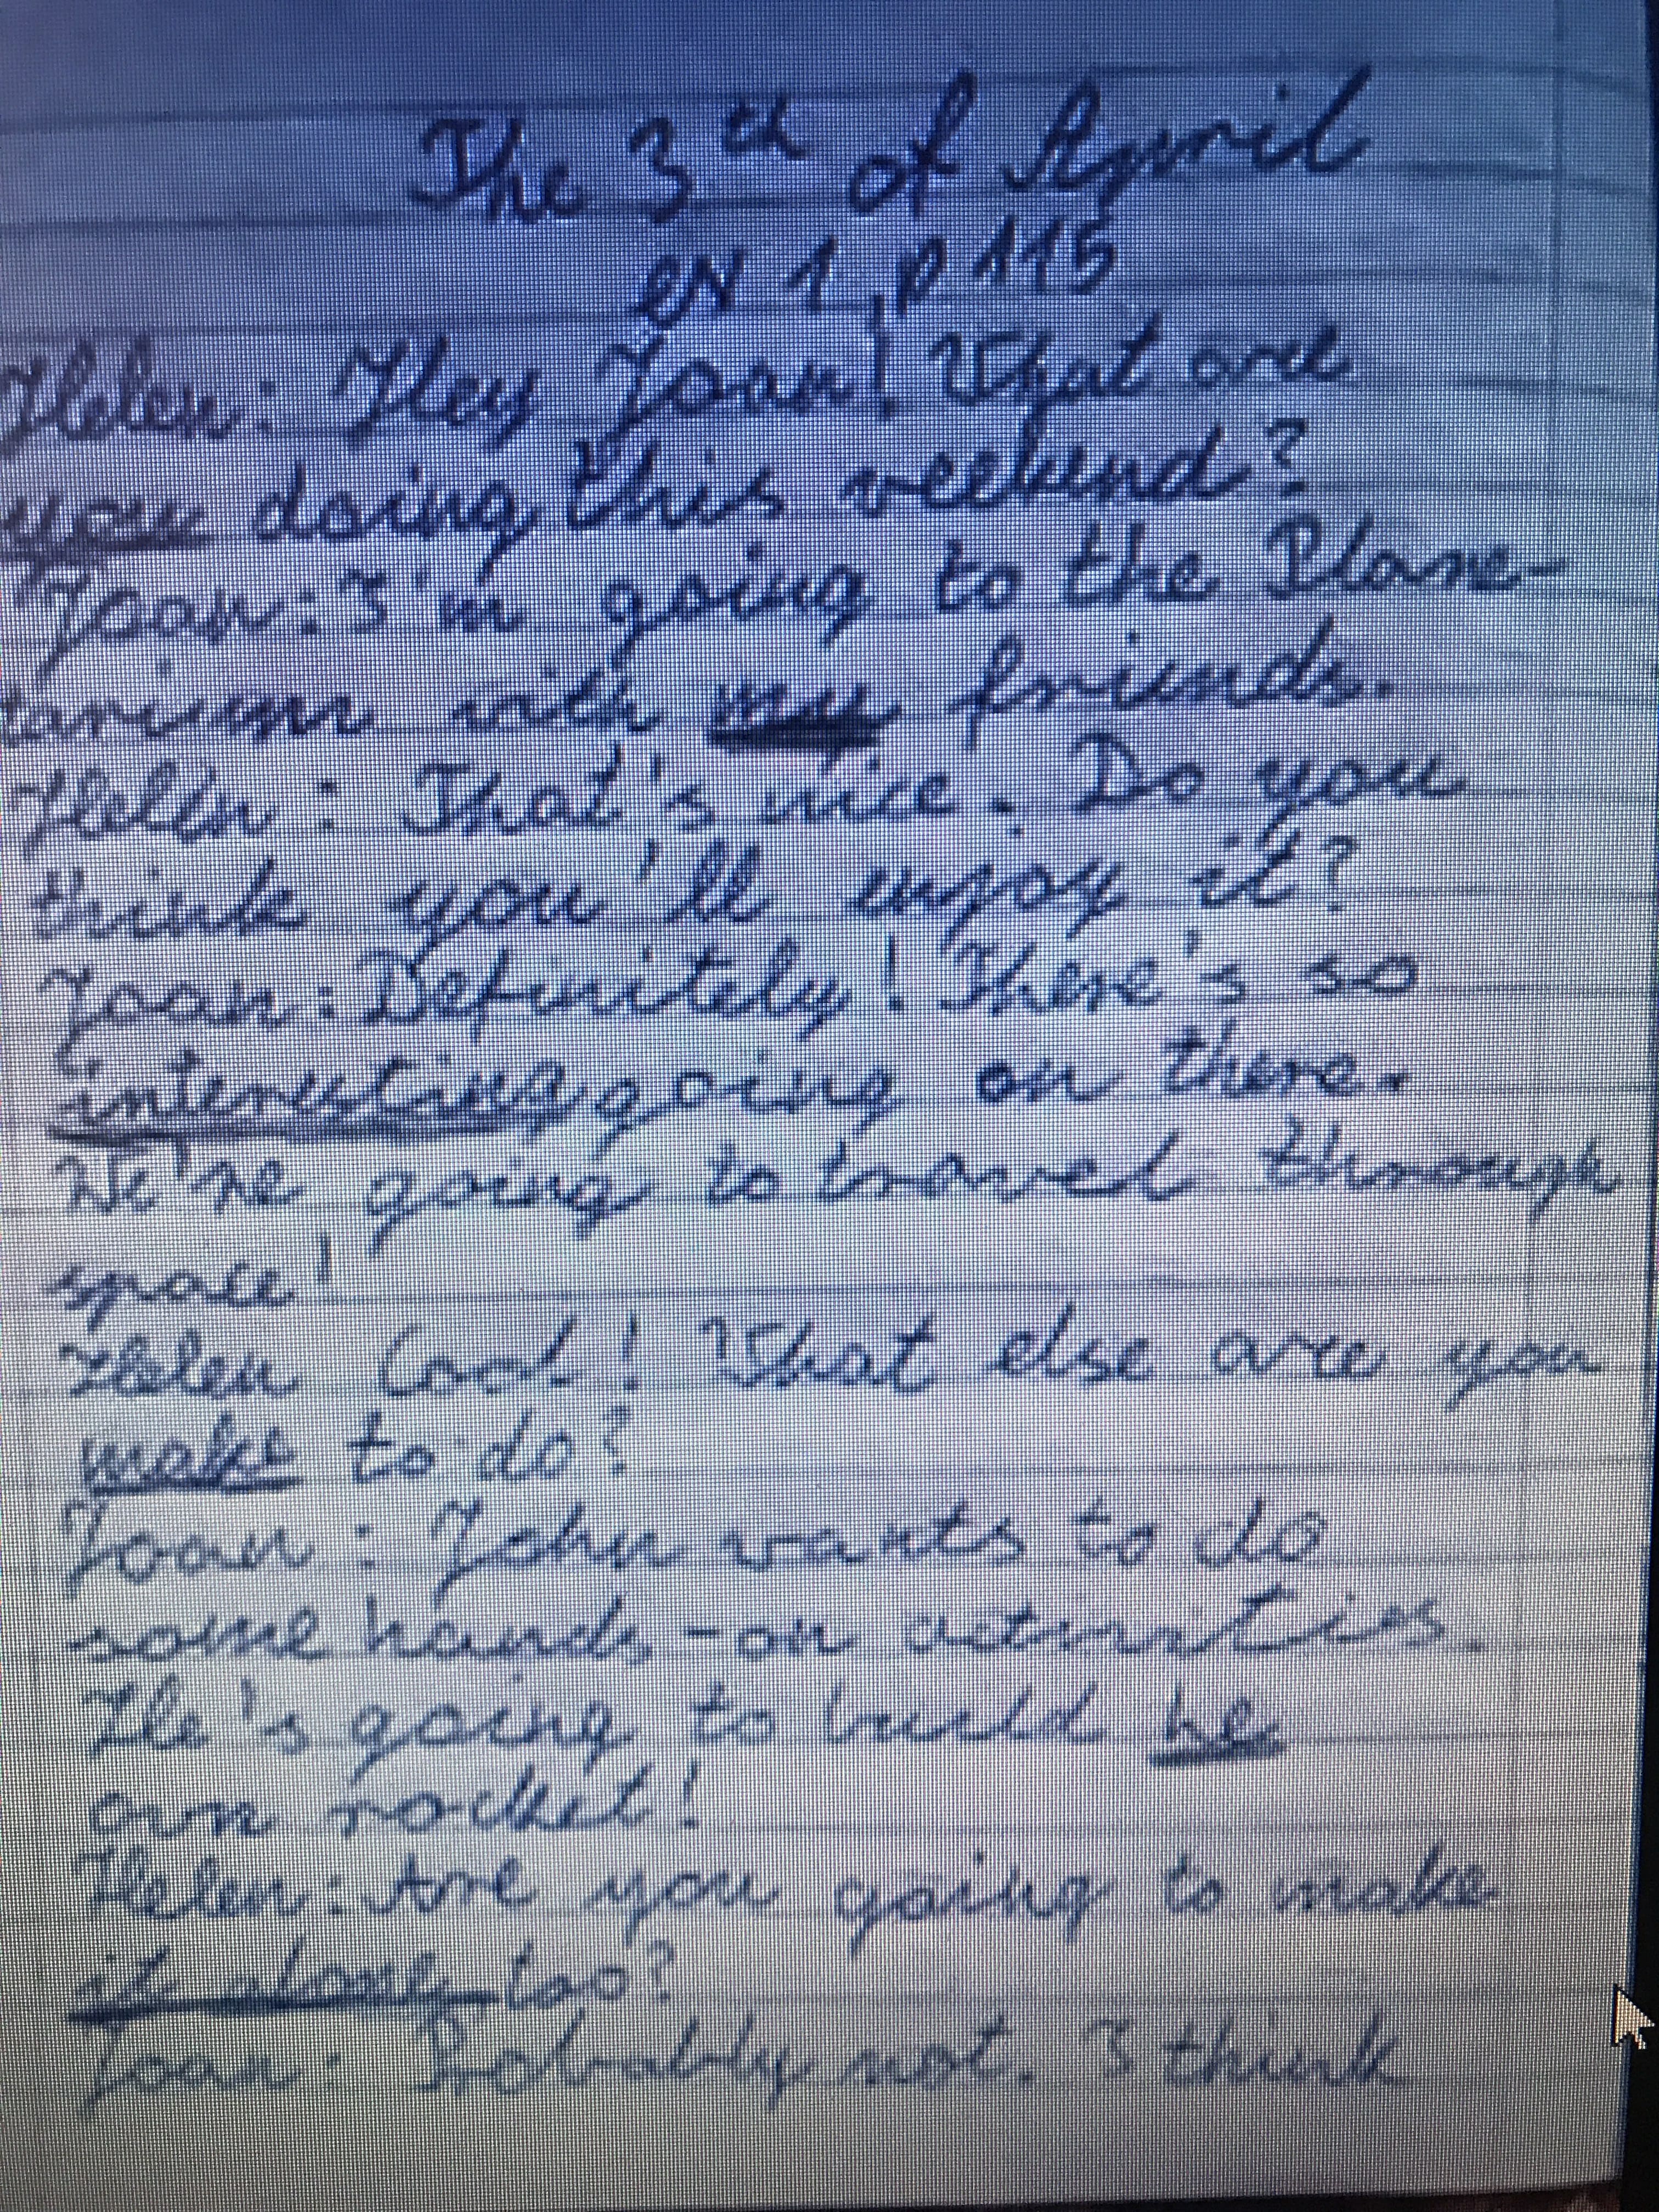 The 3th of April
ex 1, p 115
Helen: Hey Joan! What are
you doing this weekend?
Joan: I'm going to the Plane-
tarium with my friends.
Helen: That's nice. Do you
think you'll enjoy it?
Joan: Definitely! There's so
interesting going on there.
We're going to travel through
space!
Helen Cool! What else are you
make to do?
Joan: John wants to do
some hands-on activities.
He's going to build he
own rocket!
Helen: Are you going to make
it along too?
Joan: Probably not. I think